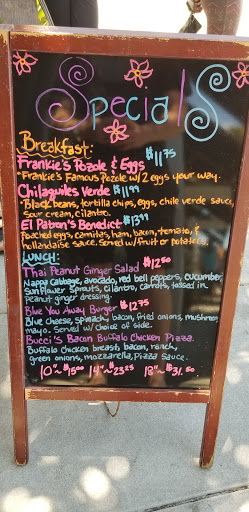 Specials
Breakfast:
Frankie's Pozole & Eggs $11.75
*Frankie's Famous Pozole w/2 eggs your way.
Chilaquiles Verde $11.99
*Black beans, tortilla chips, eggs, chile verde sauce,
sour cream, cilantro.
El Patron's Benedict $13.99
Poached eggs, carnitas, ham, bacon, tomato, &
hollandaise sauce. Served w/ fruit or potatoes.
LUNCH:
Thai Peanut Ginger Salad $12.50
Nappa cabbage, avocado, red bell peppers, cucumber,
sunflower sprouts, cilantro, carrots, tossed in
peanut ginger dressing.
Blue You Away Burger $12.75
Blue cheese, spinach, bacon, fried onions, mushroom
mayo. Served w/ choice of side.
Bucci's Bacon Buffalo Chicken Pizza.
Buffalo chicken breast, bacon, ranch,
green onions, mozzarella, pizza sauce.
10"~ $15.00 14"~ $23.25 18"~ $31.50